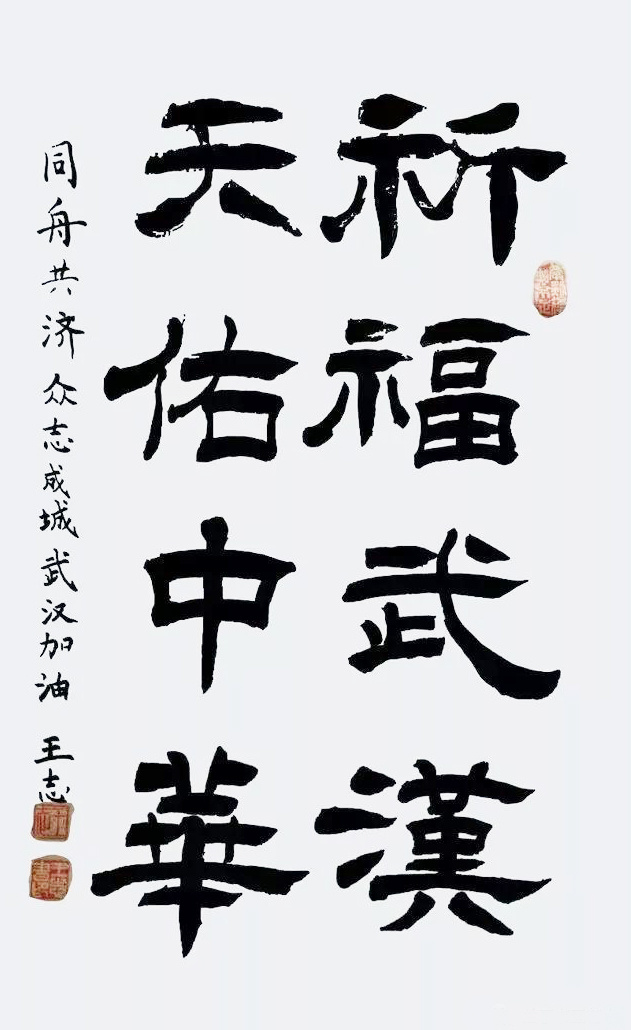 祈福武漢
天佑中華
同舟共济众志成城武汉加油 王志